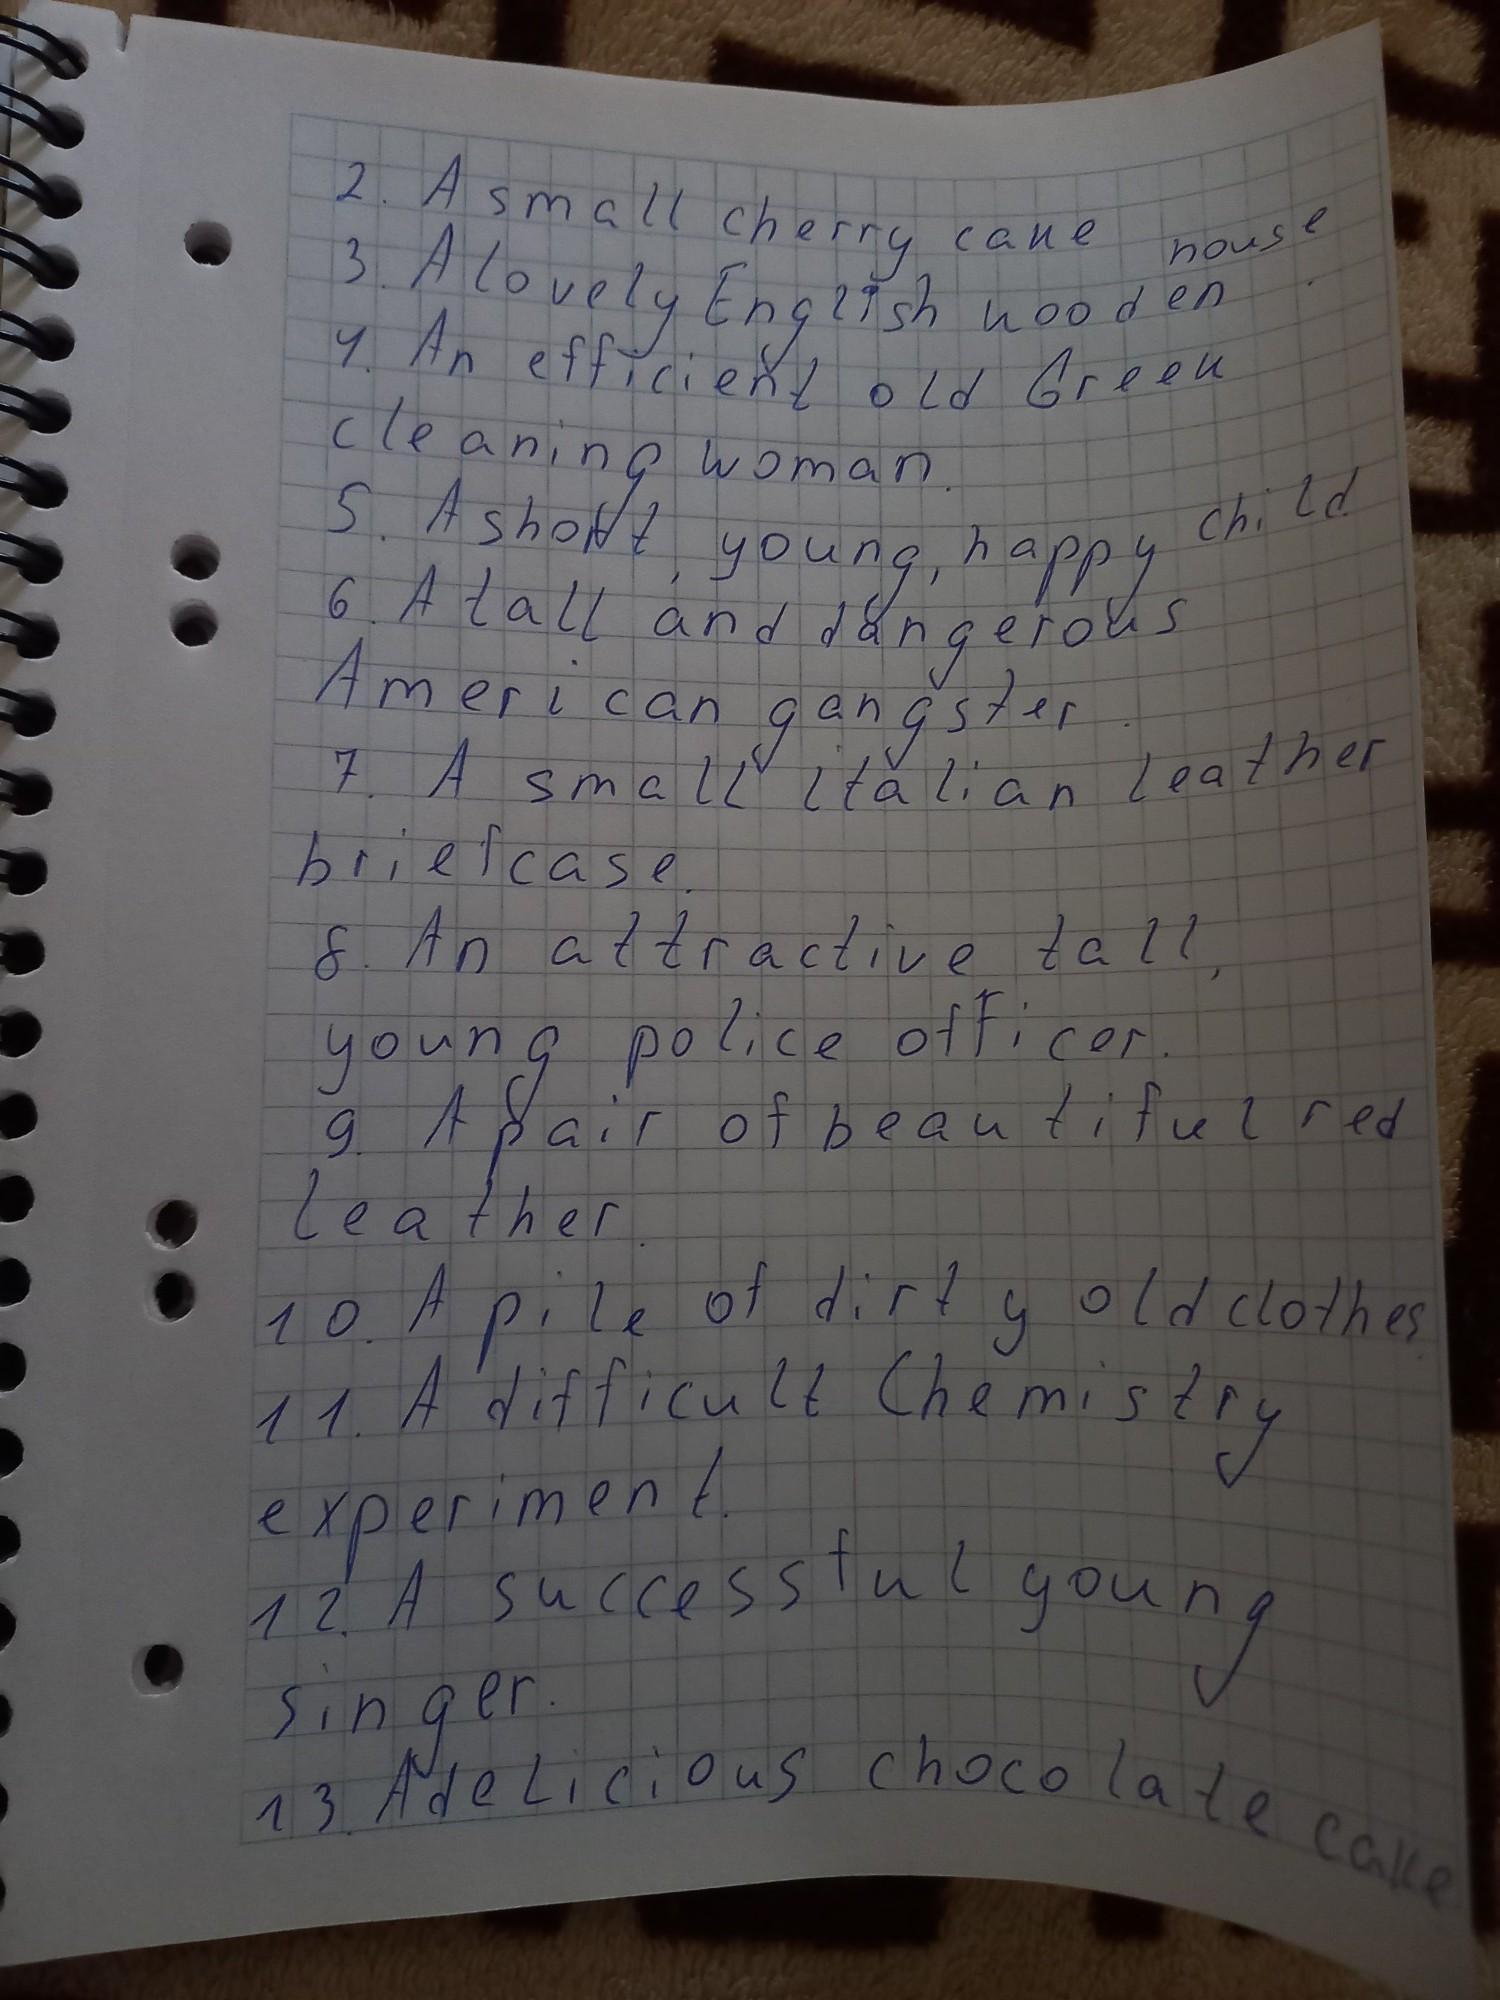 2. A small cherry cake
3. A lovely English wooden house.
4. An efficient old Greek
cleaning woman.
5. A short, young, happy child
6. A tall and dangerous
American gangster.
7. A small italian leather
briefcase.
8. An attractive tall,
young police officer.
9. A pair of beautiful red
leather.
10. A pile of dirty old clothes.
11. A difficult Chemistry
experiment.
12. A successful young
singer.
13. A delicious chocolate cake